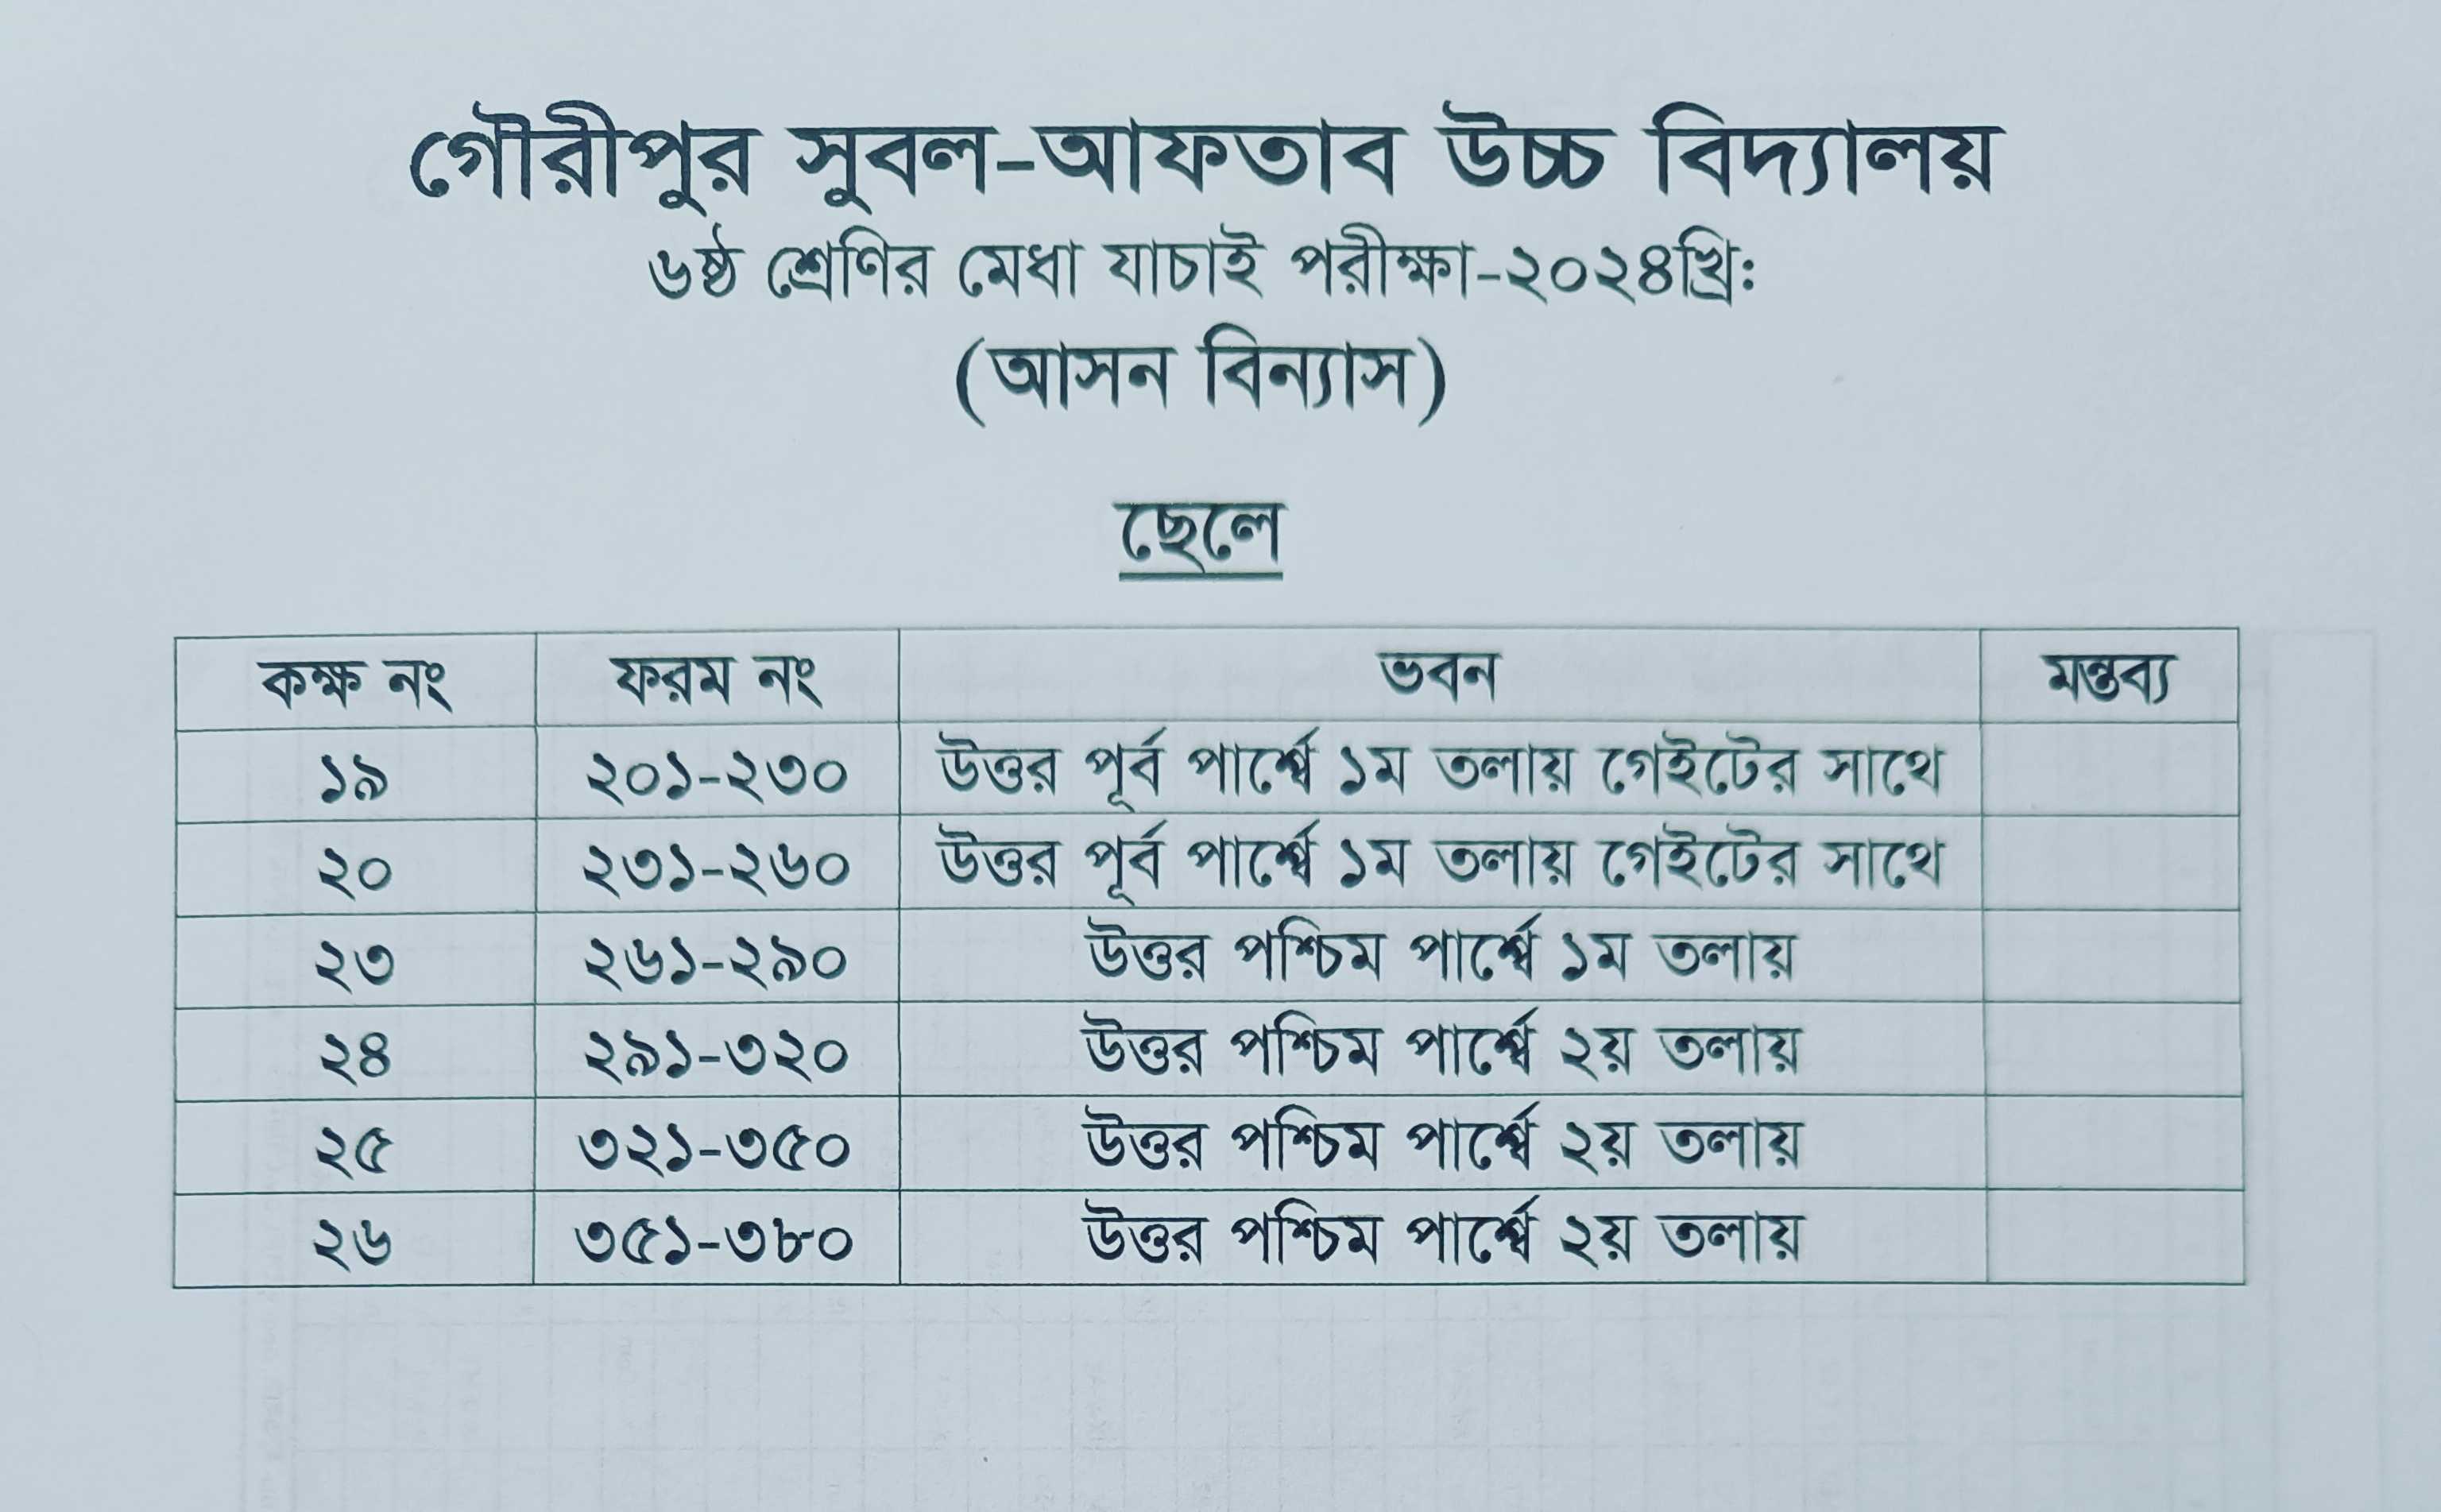 গৌরীপুর সুবল-আফতাব উচ্চ বিদ্যালয়
৬ষ্ঠ শ্রেণির মেধা যাচাই পরীক্ষা-২০২৪খ্রি:
(আসন বিন্যাস)
ছেলে
কক্ষ নং ফরম নং ভবন মন্তব্য
১৯ ২০১-২৩০ উত্তর পূর্ব পার্শ্বে ১ম তলায় গেইটের সাথে
২০ ২৩১-২৬০ উত্তর পূর্ব পার্শ্বে ১ম তলায় গেইটের সাথে
২৩ ২৬১-২৯০ উত্তর পশ্চিম পার্শ্বে ১ম তলায়
২৪ ২৯১-৩২০ উত্তর পশ্চিম পার্শ্বে ২য় তলায়
২৫ ৩২১-৩৫০ উত্তর পশ্চিম পার্শ্বে ২য় তলায়
২৬ ৩৫১-৩৮০ উত্তর পশ্চিম পার্শ্বে ২য় তলায়